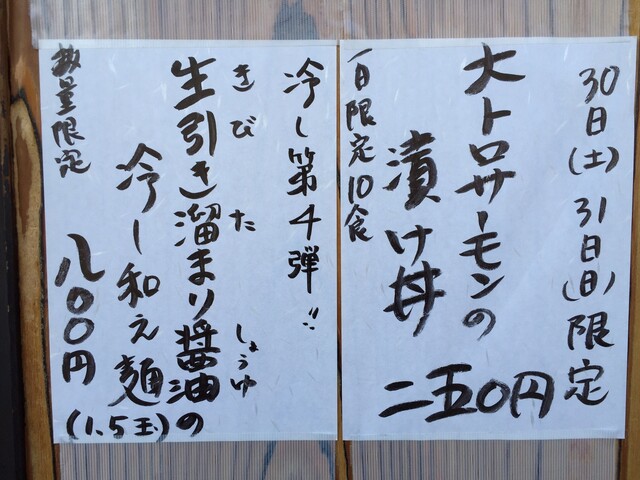 30日(土)31日(日)限定
大トロサーモンの
漬け丼
二五〇円
一日限定10食
冷し第4弾!!
きびたしょうゆ
生引き溜まり醤油の
冷し和え麺
(1.5玉)
八〇〇円
数量限定